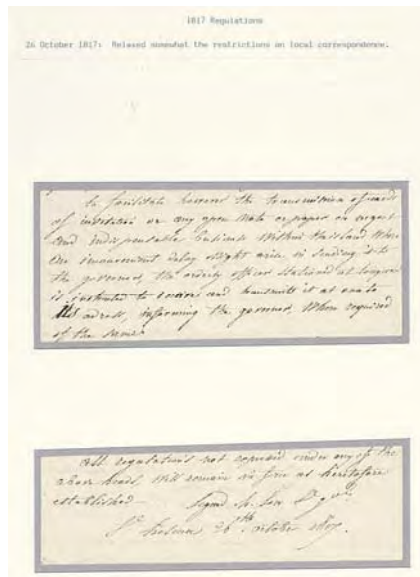 1817 Regulations
26 October 1817: Relaxed somewhat the restrictions on local correspondence.
To facilitate however the transmission of cards
of invitation or any open Note or paper on urgent
and indispensable business Within this Island Where
the inconvenient delay might arise in sending it to
the governor, the orderly officer stationed at Longwood
is instructed to receive and transmitt it at once to
its adress, informing the governor, When required
of the same
All regulations not comprised under any of the
above heads, still remain in force as heretofore
established
Signed H. Lowe
St Helena 26th october 1817.